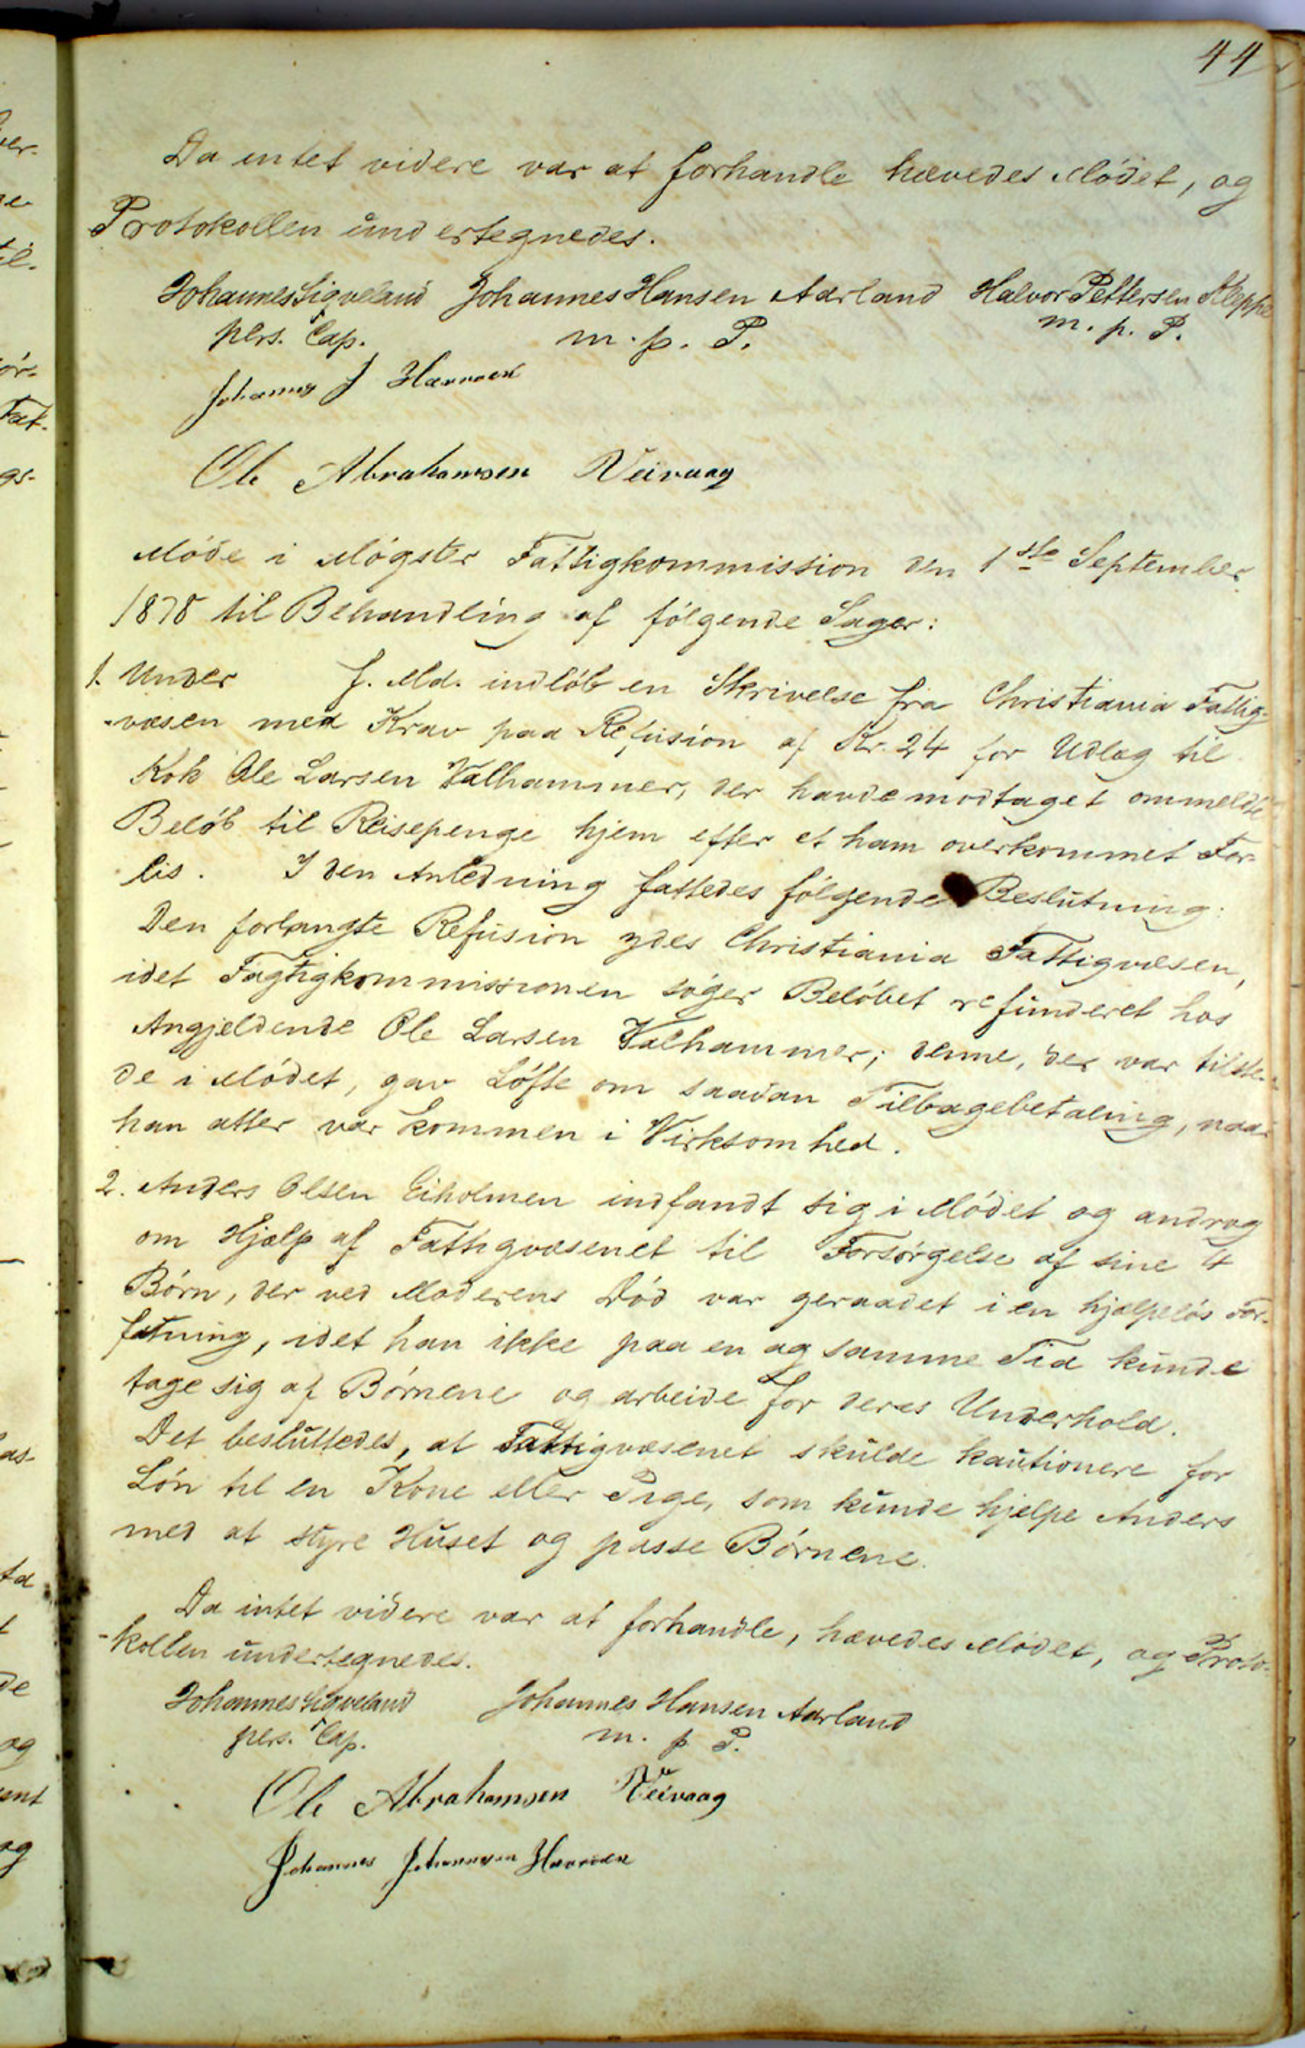 44
Da intet videre var at forhandle hævedes Mødet, og
Protokollen undertegnedes.
Johannes Sigveland Johannes Hansen Aarland Halvor Pettersen Kleppe
pers. Cap. m. p. P. m. p. P.
Johannes J
Ole Abrahamsen Veivaag
Møde i Møgster Fattigkommission den 1ste September
1878 til Behandling af følgende Sager:
1. Under f. Md. indløb en Skrivelse fra Christiania Fattig-
-væsen med Krav paa Refusion af Kr. 24 for Udlæg til
Kok Ole Larsen Valhammer, der havde modtaget ommeldte
Beløb til Reisepenge hjem efter et ham overkommet For-
lis. I den Anledning fattedes følgende Beslutning:
Den forlangte Refusion ydes Christiania Fattigvæsen,
idet Fagtigkommissionen søger Beløbet refunderet hos
Angjeldende Ole Larsen Valhammer; denne, der var tilste-
de i Mødet, gav Løfte om saadan Tilbagebetaling, naar
han atter var kommen i Virksomhed.
2. Anders Olsen Eiholmen indfandt sig i Mødet og androg
om Hjælp af Fattigvæsenet til Forsørgelse af sine 4
Børn, der ved Moderens Død var geraadet i en hjælpeløs For-
fatning, idet han ikke paa en og samme Tid kunde
tage sig af Børnene og arbeide for deres Underhold.
Det besluttedes, at Fattigvæsenet skulde kautionere for
Løn til en Kone eller Pige, som kunde hjelpe Anders
med at styre Huset og passe Børnene.
Da intet videre var at forhandle, hævedes Mødet, og Proto-
-kollen undertegnedes.
Johannes Sigveland Johannes Hansen Aarland
pers. Cap. m. p P.
Ole Abrahamsen Veivaag
Johannes Johannesen